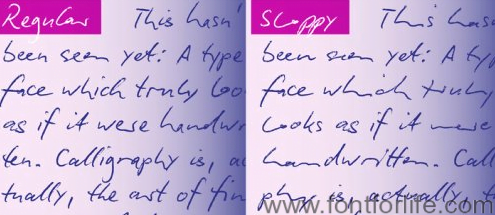 Regular
This hasn'
been seen yet: A type
face which truly loo
as if it were handwr
ten. Calligraphy is, ac
tually, the art of fin
Sloppy
This has
been seen yet: A ty
face which truly
looks as if it were
handwritten. Call
phy is, actually, t
www.fontforlife.com